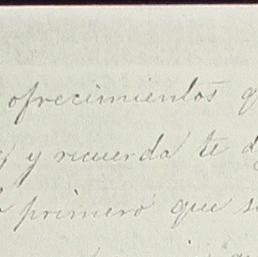 ofrecimientos q
y recuerda te d
primero que s